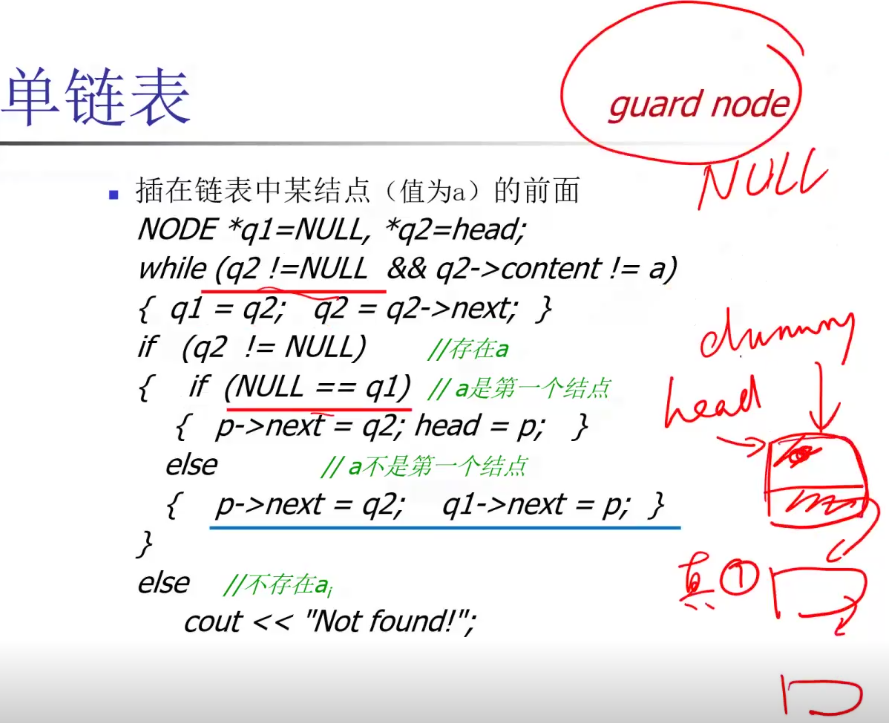 单链表
guard node
NULL
插在链表中某结点（值为a）的前面
NODE *q1=NULL, *q2=head;
while (q2 !=NULL && q2->content != a)
{ q1 = q2; q2 = q2->next; }
if (q2 != NULL) //存在a
{ if (NULL == q1) // a是第一个结点
{ p->next = q2; head = p; }
else // a不是第一个结点
{ p->next = q2; q1->next = p; }
}
else //不存在ai
cout << "Not found!";
dummy
head
真①